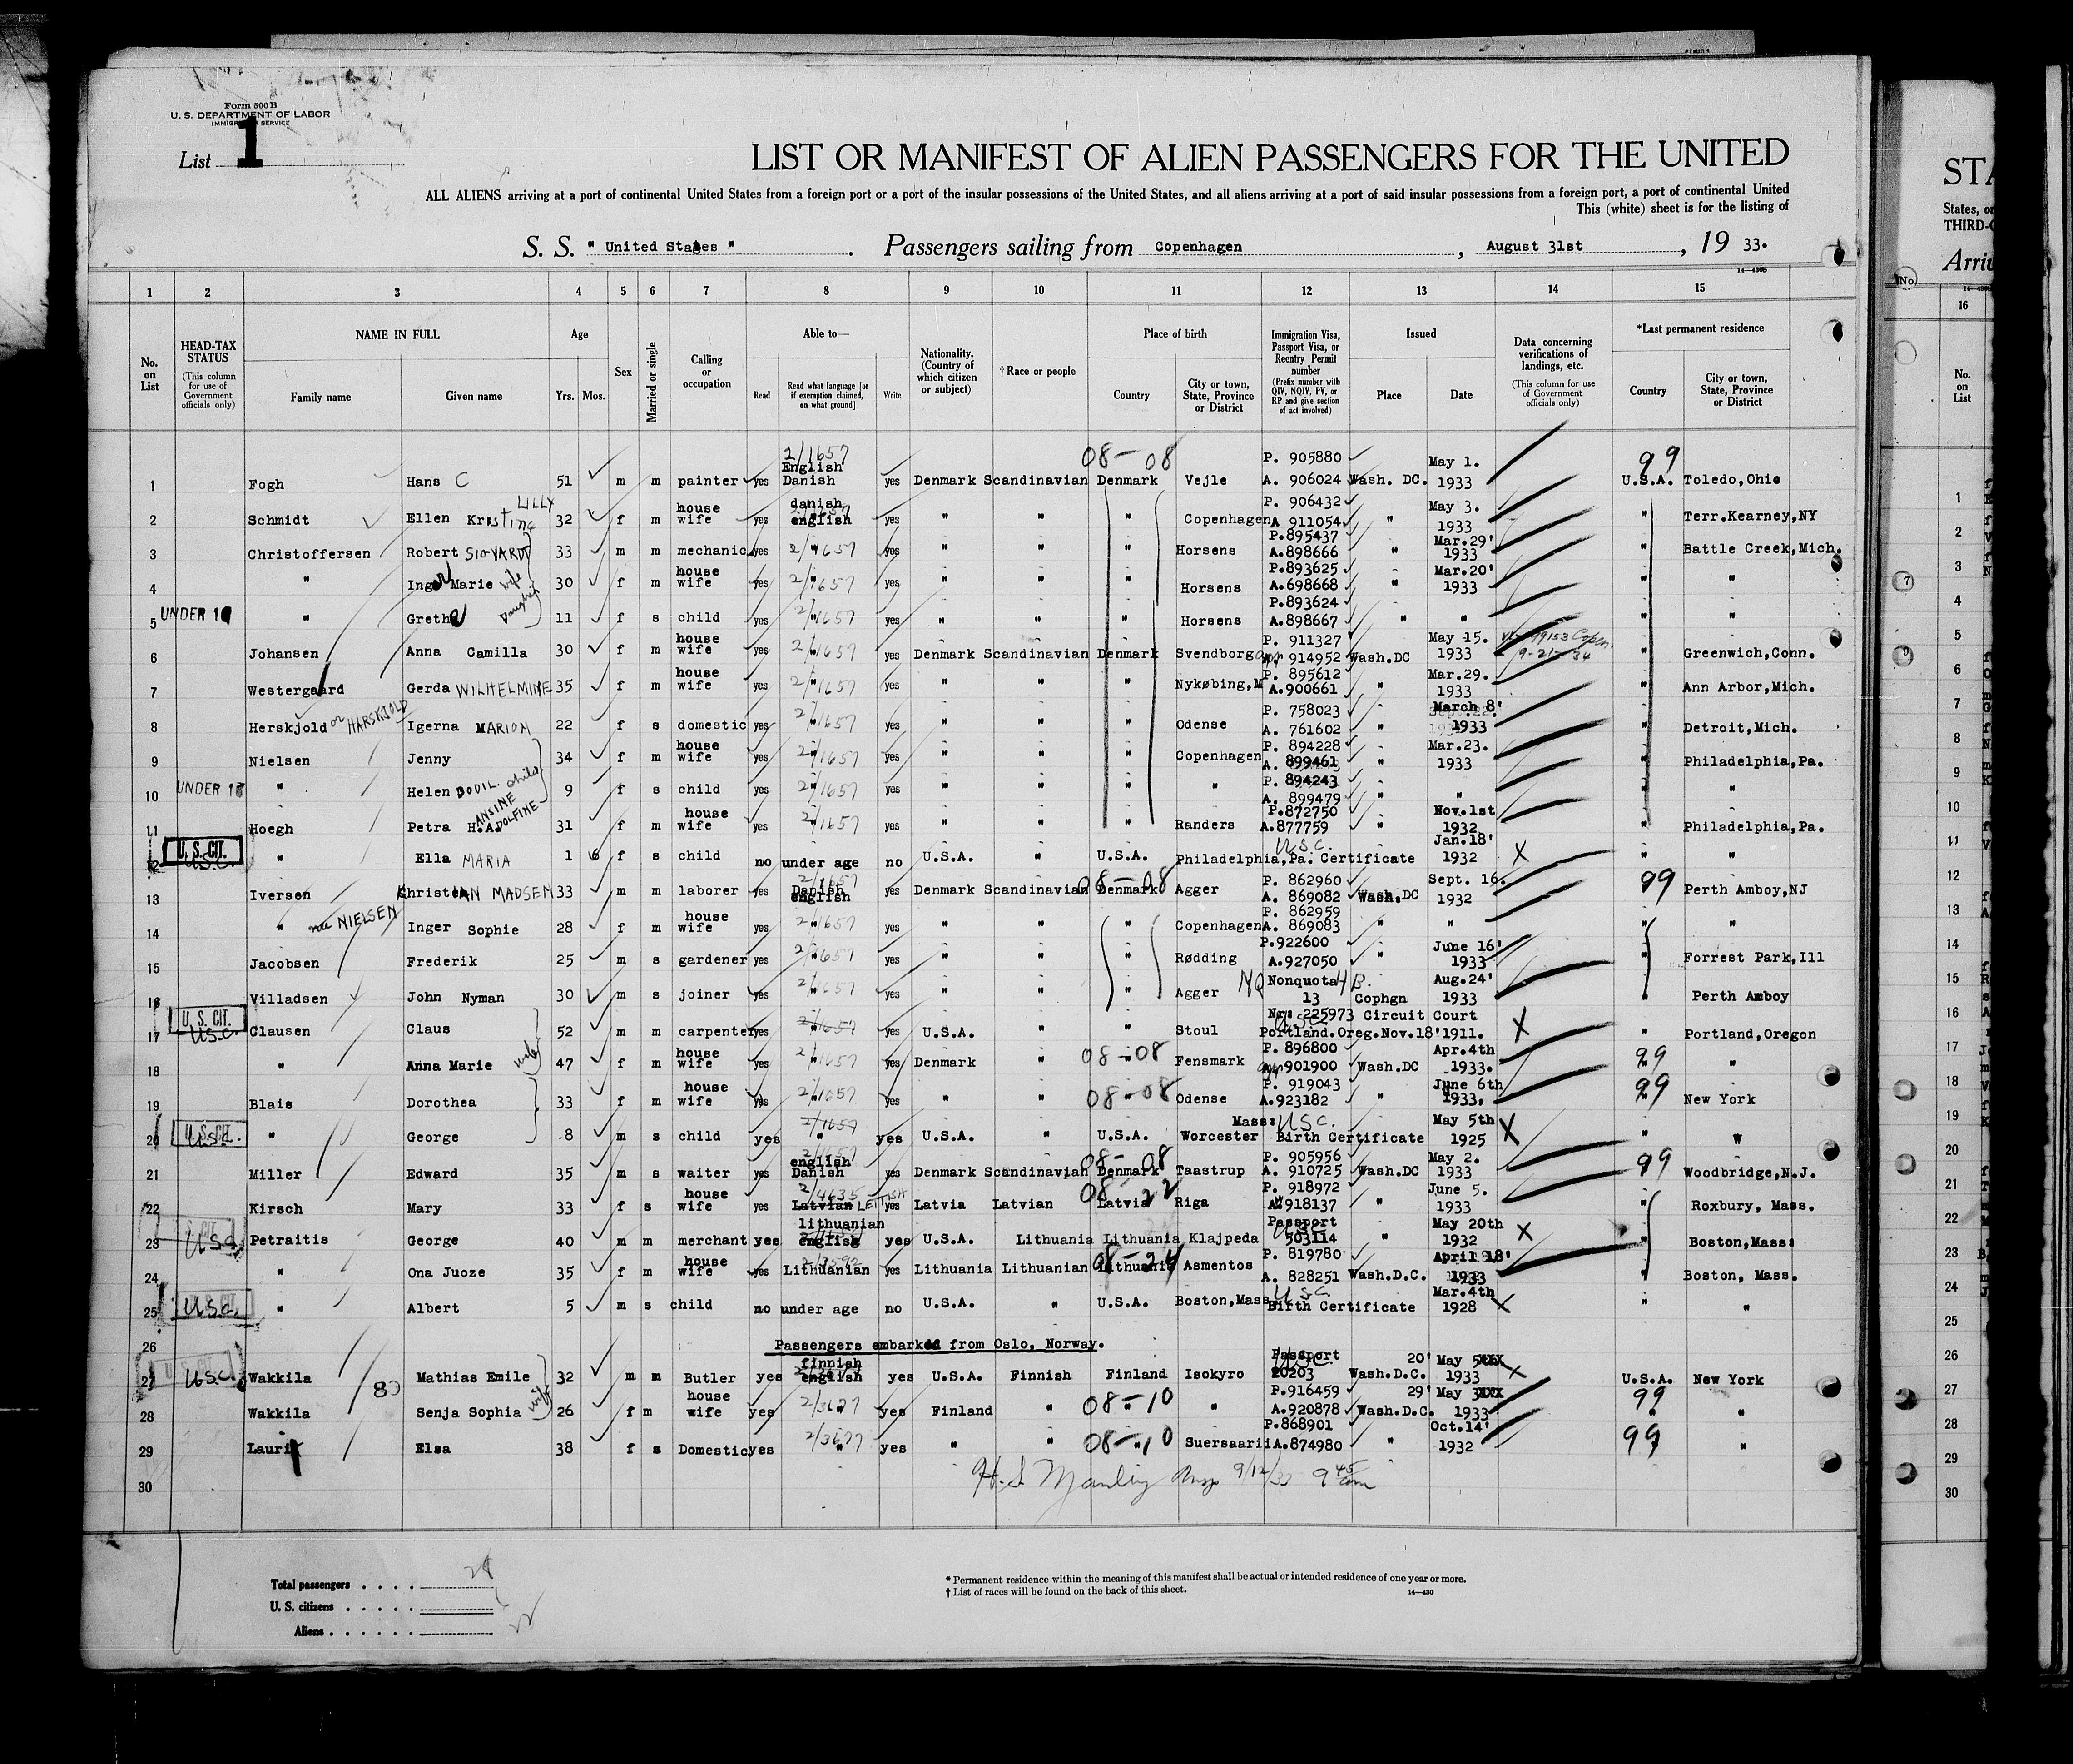 Form 500 B
U. S. DEPARTMENT OF LABOR
IMMIGRATION SERVICE
List 1
LIST OR MANIFEST OF ALIEN PASSENGERS FOR THE UNITED
ALL ALIENS arriving at a port of continental United States from a foreign port or a port of the insular possessions of the United States, and all aliens arriving at a port of said insular possessions from a foreign port, a port of continental United
This (white) sheet is for the listing of
S. S. " United States " . Passengers sailing from Copenhagen , August 31st , 19 33.
14—430b
1 2 3 4 5 6 7 8 9 10 11 12 13 14 15
No. on List
HEAD-TAX STATUS (This column for use of Government officials only)
NAME IN FULL Family name Given name
Age Yrs. Mos.
Sex
Married or single
Calling or occupation
Able to— Read Read what language [or if exemption claimed, on what ground] Write
Nationality. (Country of which citizen or subject)
†Race or people
Place of birth Country City or town, State, Province or District
Immigration Visa, Passport Visa, or Reentry Permit number (Prefix number with QIV, NQIV, PV, or RP and give section of act involved)
Issued Place Date
Data concerning verifications of landings, etc. (This column for use of Government officials only)
*Last permanent residence Country City or town, State, Province or District
1 Fogh Hans C 51 m m painter yes 2/1657 English Danish yes Denmark Scandinavian Denmark 08-08 Vejle P. 905880 A. 906024 Wash. DC. May 1. 1933 99 U.S.A. Toledo,Ohio
2 Schmidt Ellen Kristine LILLY 32 f m house wife yes danish english yes " " " Copenhagen P. 906432 A 911054 " May 3. 1933 " Terr.Kearney,NY
3 Christoffersen Robert SIGVARDT 33 m m mechanic yes 2/1657 " yes " " " Horsens P.895437 A.898666 " Mar.29' 1933 " Battle Creek,Mich.
4 " Inger Marie wife 30 f m house wife yes 2/1657 " yes " " " Horsens P.893625 A.698668 " Mar.20' 1933 " "
5 UNDER 16 " Grethe Daughter 11 f s child yes 2/1657 " yes " " " Horsens P.893624 A.898667 " " " "
6 Johansen Anna Camilla 30 f m house wife yes 2/1657 " yes Denmark Scandinavian Denmark Svendborg P. 911327 914952 Wash.DC May 15. 1933 9-21-34 " Greenwich,Conn.
7 Westergaard Gerda WILHELMINE 35 f m house wife yes 2/1657 " yes " " " Nykøbing,M P. 895612 A.900661 " Mar.29. 1933 " Ann Arbor,Mich.
8 Herskjold or HARSKJOLD Igerna MARION 22 f s domestic yes 2/1657 " yes " " " Odense P. 758023 A. 761602 " March 8' 1933 " Detroit,Mich.
9 Nielsen Jenny 34 f m house wife yes 2/1657 " yes " " " Copenhagen P. 894228 A. 899461 " Mar.23. 1933 " Philadelphia,Pa.
10 UNDER 16 " Helen BODIL. child 9 f s child yes 2/1657 " yes " " " " P. 894243 A. 899479 " " " "
11 Hoegh Petra H.A. ANSINE ADOLFINE 31 f m house wife yes 2/1657 " yes " " " Randers P.872750 A.877759 " Nov.1st 1932 " Philadelphia,Pa.
12 U. S. CIT. U.S.C. " Ella MARIA 1 6 f s child no under age no U.S.A. " U.S.A. Philadelphia,Pa. U.S.C. Certificate Jan.18' 1932 X " "
13 Iversen Christ IAN MADSEN 33 m m laborer yes 2/1657 Danish english yes Denmark Scandinavian Denmark 08-08 Agger P. 862960 A. 869082 Wash.DC Sept. 16. 1932 99 Perth Amboy,NJ
14 " nee NIELSEN Inger Sophie 28 f m house wife yes 2/1657 " yes " " " Copenhagen P. 862959 A. 869083 " " " "
15 Jacobsen Frederik 25 m s gardener yes 2/1657 " yes " " " Rødding P.922600 A.927050 " June 16' 1933 " Forrest Park,Ill
16 Villadsen John Nyman 30 m s joiner yes 2/1657 " yes " " " Agger NQ Nonquota 4 B. 13 Cophgn Aug.24' 1933 " Perth Amboy
17 U. S. CIT. U.S.C. Clausen Claus 52 m m carpenter yes 2/1657 yes U.S.A. " " Stoul Nr: 225973 Circuit Court Portland.Oreg.Nov.18'1911. X " Portland,Oregon
18 " Anna Marie wife 47 f m house wife yes 2/1657 yes Denmark " 08-08 Fensmark P. 896800 901900 Wash.DC Apr.4th 1933. 99 "
19 Blais Dorothea 33 f m house wife yes 2/1657 yes " " 08-08 Odense P. 919043 A.923182 " June 6th 1933, 99 New York
20 U.S.CIT. U.S.C. " George 8 m s child yes 2/1657 " yes U.S.A. " U.S.A. Worcester Mass: U.S.C. Birth Certificate May 5th 1925 X " "
21 Miller Edward 35 m s waiter yes english Danish yes Denmark Scandinavian Denmark 08-08 Taastrup P. 905956 A. 910725 Wash.DC May 2. 1933 99 Woodbridge,N.J.
22 Kirsch Mary 33 f s house wife yes 2/4635 Latvian LETTISH yes Latvia Latvian Latvia 08-22 Riga P. 918972 A. 918137 " June 5. 1933 " Roxbury, Mass.
23 U.S.C. Petraitis George 40 m m merchant yes lithuanian english yes U.S.A. Lithuania Lithuania Klajpeda Passport 503114 " May 20th 1932 X " Boston,Mass:
24 " Ona Juoze 35 f m house wife yes Lithuanian yes Lithuania Lithuanian Lithuania 08-24 Asmentos P. 819780 A. 828251 Wash.D.C. April 18' 1933 " Boston, Mass.
25 U.S.C. " Albert 5 m s child no under age no U.S.A. " U.S.A. Boston,Mass U S C Birth Certificate Mar.4th 1928 X " "
26 Passengers embarked from Oslo, Norway.
27 U.S.C. Wakkila Mathias Emile 32 m m Butler yes finnish english yes U.S.A. Finnish Finland Isokyro Passport 20203 Wash.D.C. 20' May 1933 X U.S.A. New York
28 Wakkila Senja Sophia wife 26 f m house wife yes 2/3677 " yes Finland " 08-10 " P.916459 A.920878 Wash.D.C. 29' May 1933 99 "
29 Lauri Elsa 38 f s Domestic yes 2/3677 " yes " " 08-10 Suersaarii P.868901 A.874980 " Oct.14' 1932 99 "
30
9/12/33 9 45 am
Total passengers . . . . 28
U. S. citizens . . . . .
Aliens . . . . . .
* Permanent residence within the meaning of this manifest shall be actual or intended residence of one year or more.
† List of races will be found on the back of this sheet.
14—430
STA
States, or
THIRD-C
Arri
No.
16
No. on List
1
2
3
4
5
6
7
8
9
10
11
12
13
14
15
16
17
18
19
20
21
22
23
24
25
26
27
28
29
30